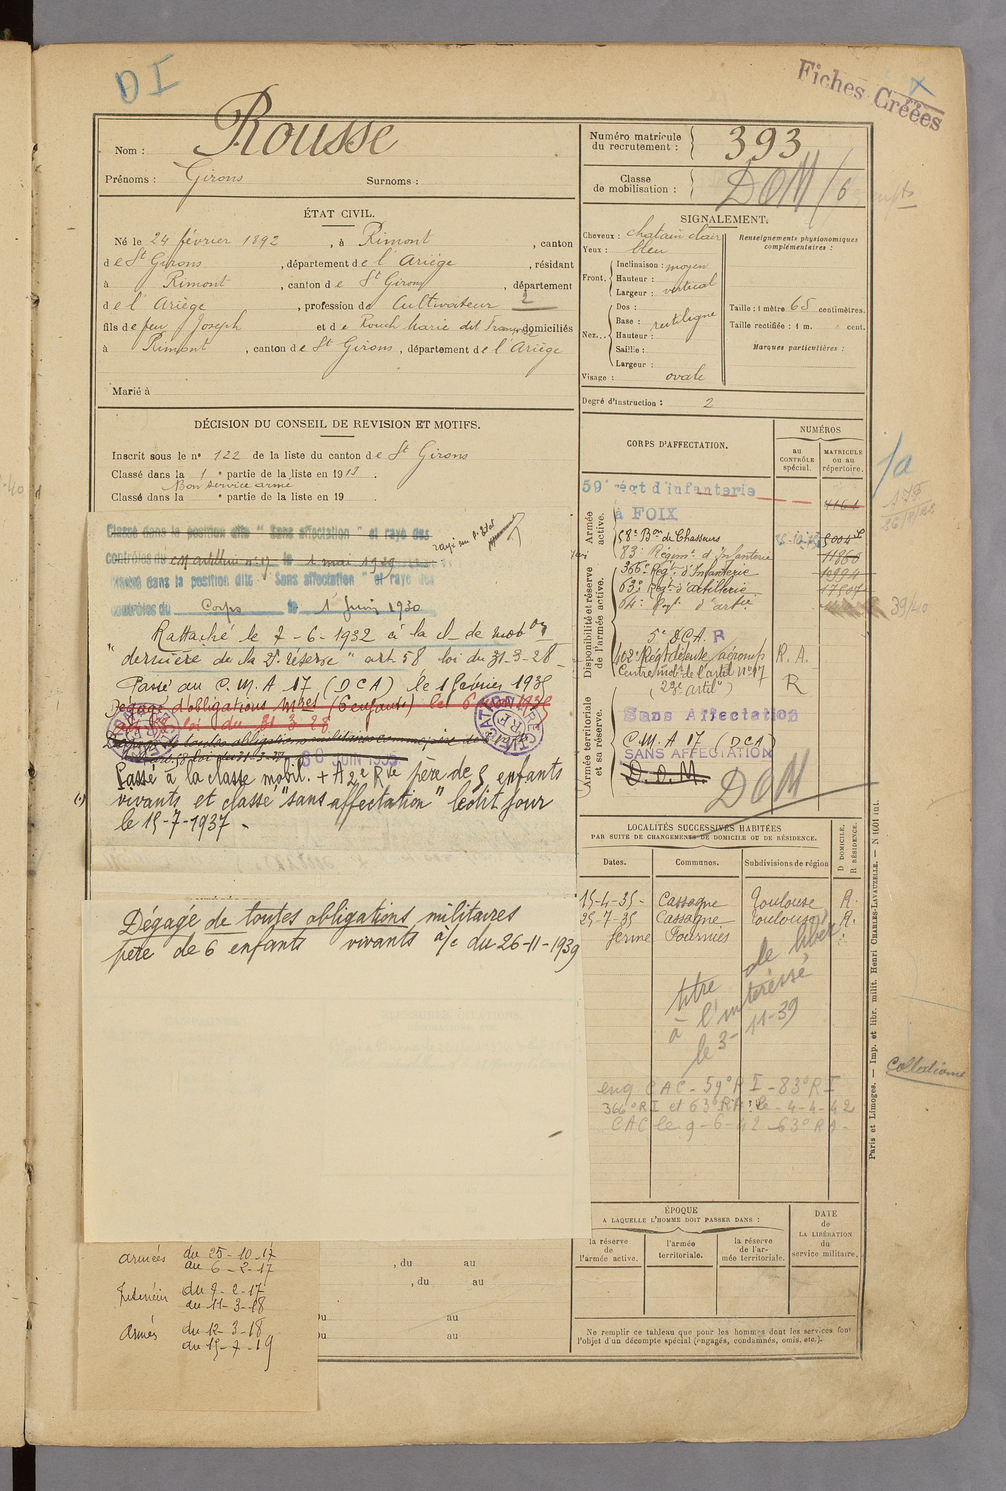 DI
Fiches Créées
Nom : Rousse
Prénoms : Girons Surnoms :
Numéro matricule du recrutement : 393
Classe de mobilisation : DOM / 6
ÉTAT CIVIL.
Né le 24 février 1892, à Rimont, canton
de St Girons, département de l'Ariège, résidant
à Rimont, canton de St Girons, département
de l'Ariège, profession de Cultivateur 2
fils de feu Joseph et de Rouch Marie dit domiciliés
à Rimont, canton de St Girons, département de l'Ariège
Marié à
SIGNALEMENT.
Cheveux : chatain clair
Yeux : bleu
Front. Inclinaison : moyen
Hauteur :
Largeur : vertical
Nez... Dos :
Base : rectiligne
Hauteur :
Saillie :
Largeur :
Visage : ovale
Renseignements physionomiques
complémentaires :
Taille : 1 mètre 65 centimètres.
Taille rectifiée : 1 m. cent.
Marques particulières :
Degré d'instruction : 2
DÉCISION DU CONSEIL DE REVISION ET MOTIFS.
Inscrit sous le n° 122 de la liste du canton de St Girons
Classé dans la 1e partie de la liste en 1913.
Bon service armé
Classé dans la e partie de la liste en 19
Classé dans la position dite "Sans affectation" et rayé des
contrôles du cm artillerie n° 17 le 1 mai 1929
Classé dans la position dite "Sans affectation" et rayé des
contrôles du Corps le 1er Juin 1930
Rattaché le 7-6-1932 à la cl. de mobon
"dernière de la 2e réserve" art. 58 loi du 31-3-28
Passé au C.M.A 17 (DCA) le 1 février 1935
Dégagé d'obligations mres (6 enfants) le 6
loi du 31 3 28
30 JUIN 1935
Passé à la classe mobil. + A 2e Rve père de 5 enfants
vivants et classé "sans affectation" ledit jour
le 15-7-1937.
Dégagé de toutes obligations militaires
père de 6 enfants vivants à/c du 26-11-1939
armées du 25-10-17
au 6-2-17
Intérieur du 7-2-17
au 11-3-18
armées du 12-3-18
au 15-7-19
, du au
, du au
Du au
Du au
CORPS D'AFFECTATION.
NUMÉROS
au CONTRÔLE spécial.
MATRICULE ou au répertoire.
Armée active.
59e régt d'infanterie
à FOIX
4161
Disponibilité et réserve de l'armée active.
58e Bon de Chasseurs
83e Régimt d'Infanterie
366e Régt d'Infanterie
63e Régt d'artillerie
64e Régt d'artie
39/40
5e DCA. R
402e Régt défense c/aéronefs R.A.
Centre mobr de l'artie n° 17 R
Armée territoriale et sa réserve.
Sans Affectation
C.M.A 17 (DCA)
SANS AFFECTATION
D.O.M.
DOM
LOCALITÉS SUCCESSIVES HABITÉES
PAR SUITE DE CHANGEMENTS DE DOMICILE OU DE RÉSIDENCE.
Dates. Communes. Subdivisions de région
D DOMICILE. R RÉSIDENCE.
15-4-35- Cassagne Toulouse R.
25-7-35 Cassagne Toulouse R.
ferme Fourniés
titre de
à l'intéressé
le 3-11-39
eng CAC - 59e RI - 83e RI
366e RI et 63e RA : le 4-4-42
CAC le 9-6-42 63e RA -
ÉPOQUE
A LAQUELLE L'HOMME DOIT PASSER DANS :
la réserve de l'armée active.
l'armée territoriale.
la réserve de l'armée territoriale.
DATE de LA LIBÉRATION du service militaire.
Ne remplir ce tableau que pour les hommes dont les services font
l'objet d'un décompte spécial (engagés, condamnés, omis, etc.).
Paris et Limoges. — Imp. et libr. milit. Henri CHARLES-LAVAUZELLE. — N 1601 int.